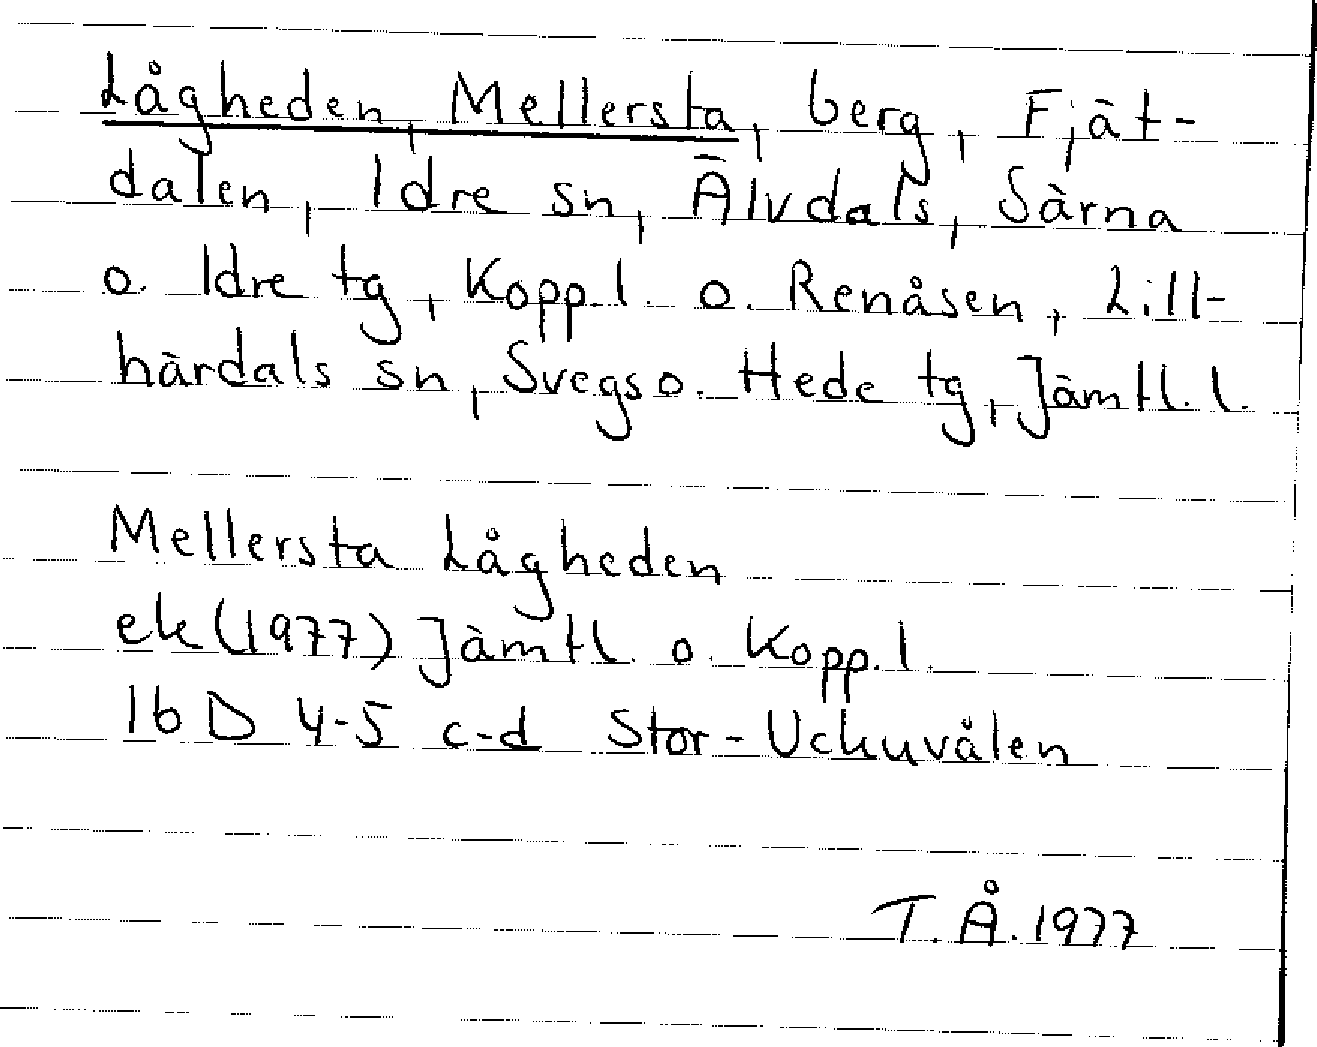 Lågheden, Mellersta, berg, Fjät-
dalen, Idre sn, Älvdals, Särna
o. Idre tg, Kopp.l. o. Renåsen, Lill-
härdals sn, Svegs o. Hede tg, Jämtl. l.
Mellersta Lågheden
ek (1977) Jämtl. o. Kopp. l.
16 D 4-5 c-d Stor-Uckuvålen
T. Å. 1977